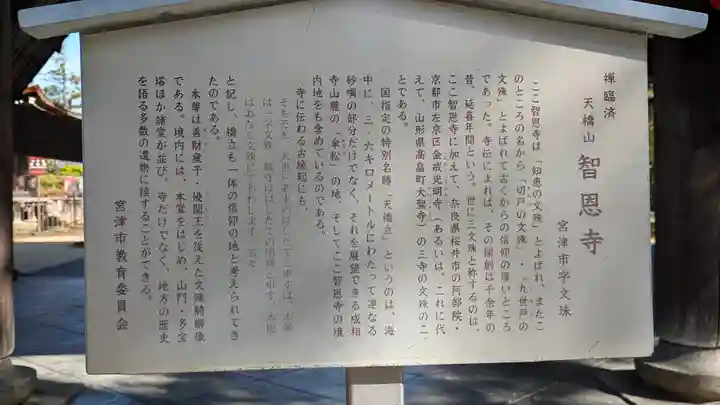 禅臨済
天橋山 智恩寺
宮津市字文珠
ここ智恩寺は「知恵の文殊」とよばれ、またこ
のところの名から「切戸の文殊」・「九世戸の
文殊」とよばれて古くからの信仰の厚いところ
であった。寺伝によれば、その開創は千余年の
昔、延喜年間という。世に三文殊と称するのは、
ここ智恩寺に加えて、奈良県桜井市の阿部院・
京都市左京区金戒光明寺(あるいは、これに代
えて、山形県高畠町大聖寺)の三寺の文殊のこ
とである。
国指定の特別名勝「天橋立」というのは、海
中に、三・六キロメートルにわたって連なる
砂嘴の部分だけでなく、それを展望できる成相
寺山麓の「傘松」の地、そしてここ智恩寺の境
内地をも含めているのである。
寺に伝わる古縁起にも、
と記し、橋立も一体の信仰の地と考えられてき
たのである。
本尊は善財童子・優闐王を従えた文殊騎獅像
である。境内には、本堂をはじめ、山門・多宝
塔ほか諸堂が並び、寺だけでなく、地方の歴史
を語る多数の遺物に接することができる。
宮津市教育委員会